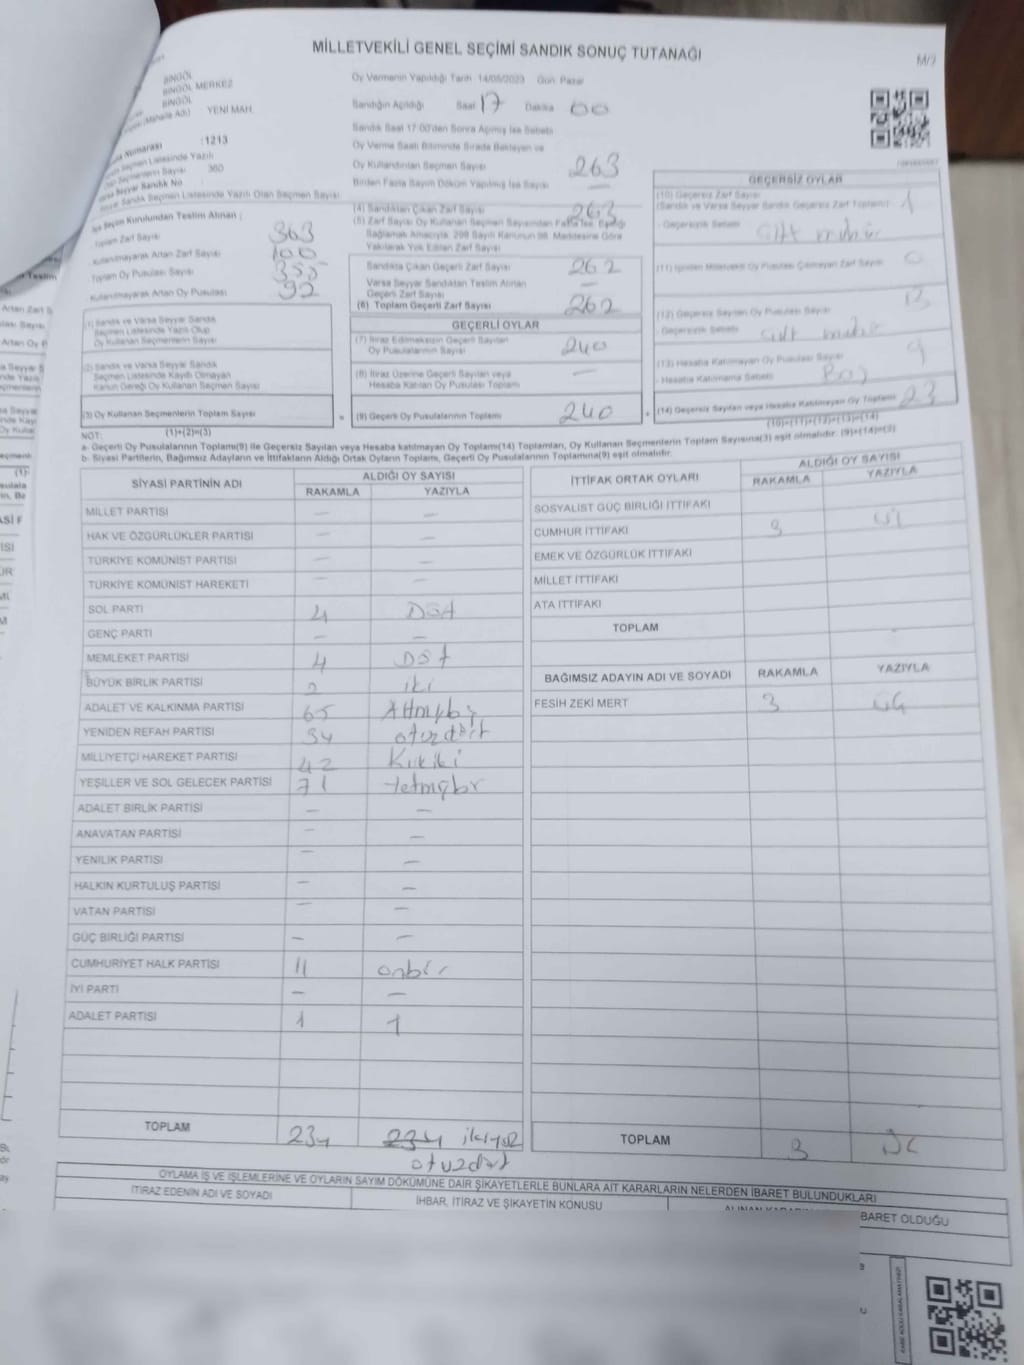 MİLLETVEKİLİ GENEL SEÇİMİ SANDIK SONUÇ TUTANAĞI
BİNGÖL
BİNGÖL MERKEZ
BİNGÖL
YENİ MAH.
Numarası :1213
Seçmen Listesinde Yazılı
Seçmenlerin Sayısı 360
Seyyar Sandık No
Sandık Seçmen Listesinde Yazılı Olan Seçmen Sayısı
İlçe Seçim Kurulundan Teslim Alınan ;
Toplam Zarf Sayısı 363
Kullanılmayarak Artan Zarf Sayısı 100
Toplam Oy Pusulası Sayısı 355
Kullanılmayarak Artan Oy Pusulası 92
(1) Sandık ve Varsa Seyyar Sandık
Seçmen Listesinde Yazılı Olup
Oy Kullanan Seçmenlerin Sayısı
(2) Sandık ve Varsa Seyyar Sandık
Seçmen Listesinde Kayıtlı Olmayan
Kanun Gereği Oy Kullanan Seçmen Sayısı
(3) Oy Kullanan Seçmenlerin Toplam Sayısı
(1)+(2)=(3)
Oy Vermenin Yapıldığı Tarih :14/05/2023 Gün: Pazar
Sandığın Açıldığı Saat 17 Dakika 00
Sandık Saat 17:00'den Sonra Açılmış İse Sebebi
Oy Verme Saati Bitiminde Sırada Bekleyen ve
Oy Kullandırılan Seçmen Sayısı 263
Birden Fazla Sayım Döküm Yapılmış İse Sayısı —
(4) Sandıktan Çıkan Zarf Sayısı 263
(5) Zarf Sayısı Oy Kullanan Seçmen Sayısından Fazla İse, Eşitliği
Sağlamak Amacıyla, 298 Sayılı Kanunun 98. Maddesine Göre
Yakılarak Yok Edilen Zarf Sayısı
Sandıkta Çıkan Geçerli Zarf Sayısı 262
Varsa Seyyar Sandıktan Teslim Alınan
Geçerli Zarf Sayısı —
(6) Toplam Geçerli Zarf Sayısı 262
GEÇERLİ OYLAR
(7) İtiraz Edilmeksizin Geçerli Sayılan
Oy Pusulalarının Sayısı 240
(8) İtiraz Üzerine Geçerli Sayılan veya
Hesaba Katılan Oy Pusulası Toplamı —
(9) Geçerli Oy Pusulalarının Toplamı 240
M/2
GEÇERSİZ OYLAR
(10) Geçersiz Zarf Sayısı
(Sandık ve Varsa Seyyar Sandık Geçersiz Zarf Toplamı) 1
- Geçersizlik Sebebi Çift mühür
(11) İçinden Milletvekili Oy Pusulası Çıkmayan Zarf Sayısı 0
(12) Geçersiz Sayılan Oy Pusulası Sayısı 13
- Geçersizlik Sebebi Çift mühür
(13) Hesaba Katılmayan Oy Pusulası Sayısı 9
- Hesaba Katılmama Sebebi Boş
(14) Geçersiz Sayılan veya Hesaba Katılmayan Oy Toplamı 23
(10)+(11)+(12)+(13)=(14)
NOT:
a- Geçerli Oy Pusulalarının Toplamı(9) ile Geçersiz Sayılan veya Hesaba katılmayan Oy Toplamı(14) Toplamları, Oy Kullanan Seçmenlerin Toplam Sayısına(3) eşit olmalıdır. (9)+(14)=(3)
b- Siyasi Partilerin, Bağımsız Adayların ve İttifakların Aldığı Ortak Oyların Toplamı, Geçerli Oy Pusulalarının Toplamına(9) eşit olmalıdır.
SİYASİ PARTİNİN ADI ALDIĞI OY SAYISI
RAKAMLA YAZIYLA
MİLLET PARTİSİ — —
HAK VE ÖZGÜRLÜKLER PARTİSİ — —
TÜRKİYE KOMÜNİST PARTİSİ — —
TÜRKİYE KOMÜNİST HAREKETİ — —
SOL PARTİ 4 Dört
GENÇ PARTİ — —
MEMLEKET PARTİSİ 4 Dört
BÜYÜK BİRLİK PARTİSİ 2 iki
ADALET VE KALKINMA PARTİSİ 65 Altmışbeş
YENİDEN REFAH PARTİSİ 34 otuzdört
MİLLİYETÇİ HAREKET PARTİSİ 42 Kırkiki
YEŞİLLER VE SOL GELECEK PARTİSİ 71 Yetmişbir
ADALET BİRLİK PARTİSİ — —
ANAVATAN PARTİSİ — —
YENİLİK PARTİSİ — —
HALKIN KURTULUŞ PARTİSİ — —
VATAN PARTİSİ — —
GÜÇ BİRLİĞİ PARTİSİ — —
CUMHURİYET HALK PARTİSİ 11 onbir
İYİ PARTİ — —
ADALET PARTİSİ 1 1
TOPLAM 234 234 ikiyüz
otuzdört
İTTİFAK ORTAK OYLARI ALDIĞI OY SAYISI
RAKAMLA YAZIYLA
SOSYALİST GÜÇ BİRLİĞİ İTTİFAKI
CUMHUR İTTİFAKI 3 üç
EMEK VE ÖZGÜRLÜK İTTİFAKI
MİLLET İTTİFAKI
ATA İTTİFAKI
TOPLAM
BAĞIMSIZ ADAYIN ADI VE SOYADI RAKAMLA YAZIYLA
FESİH ZEKİ MERT 3 üç
TOPLAM 3 üç
OYLAMA İŞ VE İŞLEMLERİNE VE OYLARIN SAYIM DÖKÜMÜNE DAİR ŞİKAYETLERLE BUNLARA AİT KARARLARIN NELERDEN İBARET BULUNDUKLARI
İTİRAZ EDENİN ADI VE SOYADI İHBAR, İTİRAZ VE ŞİKAYETİN KONUSU
BARET OLDUĞU